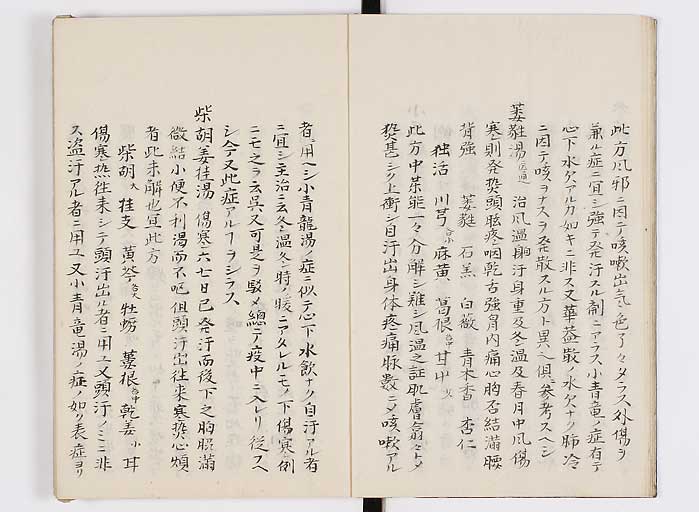 此方風邪ニ因テ咳嗽出気急色了々タラス外傷ヲ
兼ル症ニ宜シ強テ発汗スル剤ニアラス小青竜ノ症有テ
心下水飲アル力如キニ非ス又華蓋散ノ水飲ナク肺冷
ニ因テ咳ヲナスヲ発散スル方ト異ヘ俱ニ参考スヘシ
葳蕤湯 治風温身汗身重及冬温及春月中風傷
寒則発熱頭眩疼咽乾舌強胃内痛心胸否結滿腰
背強 葳蕤 石羔 白薇 青木香 杏仁
独活 川芎 麻黄 葛根 甘中
此方中某能一々分解シ難シ風温之証肌膚翕々トシ
熱甚シク上衝シ自汗出身体疼痛脉数ニシメ咳嗽アル
者ニ用ヘシ小青龍湯ノ症ニ似テ心下水飲ナク自汗アル者
ニ宜シ主治ニ云冬温冬時ノ暖ニアタレルモノ下傷寒ノ例
ニモ之ヲ云呉又可是ヲ駁メ總テ疫中ニ入レリ従フヘ
シ今又此症アルヿヲシラス
柴胡姜桂湯 傷寒六七日已発汗而後下之胸脇滿
微結小便不利渇而不嘔但頭汗出往来寒熱心煩
者此未解也宜此方
柴胡大 桂支 黄芩 牡蛎 蔞根 乾姜小 耳
傷寒熱往来シテ頭汗出ル者ニ用ユ又頭汗ノミニ非
ス盗汗アル者ニ用ユ又小青竜湯ノ症ノ如ク表症ヨリ